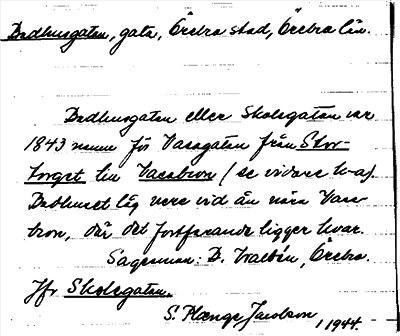 Badhusgatan, gata, Örebro stad, Örebro län.
Badhusgatan eller Skolegatan var
1843 namn för Vasagatan från Stor-
torget till Vasabron (se vidare d.o.)
Badhuset låg nere vid ån nära Vasa-
bron, där det fortfarande ligger kvar.
Sagesman: B. Waldén, Örebro.
Jfr Skolegatan.
S. Jacobson, 1944.